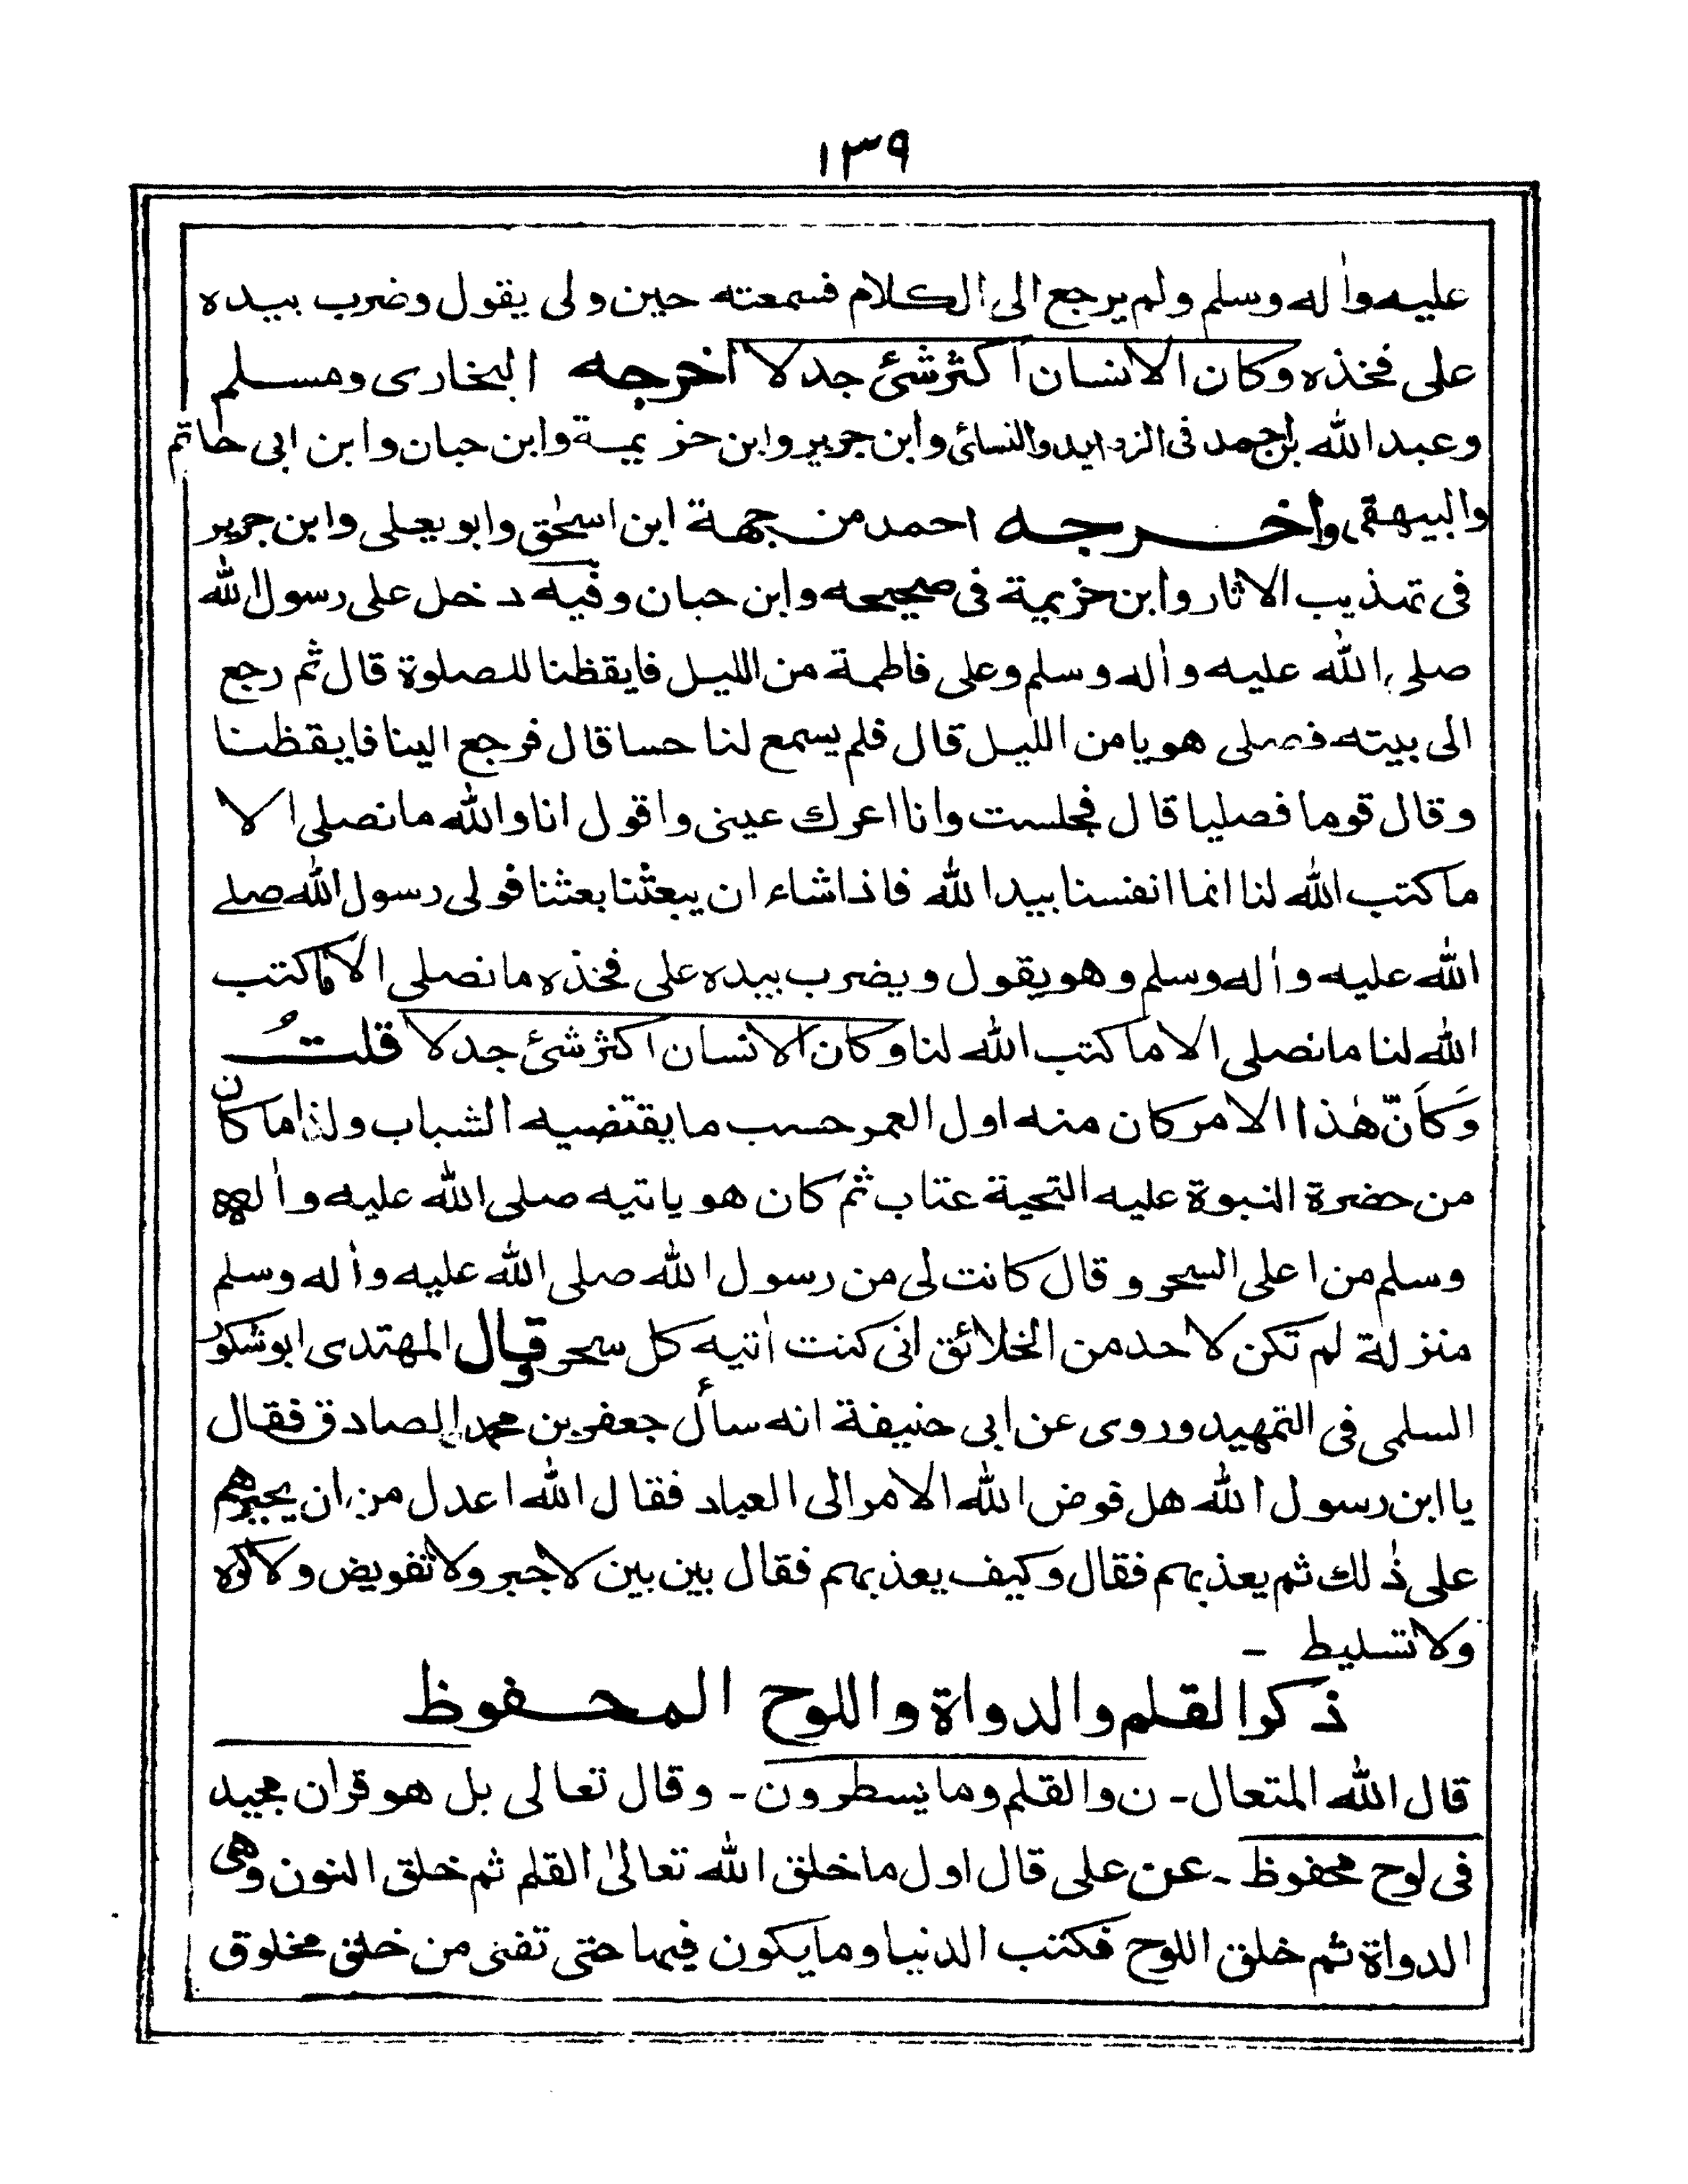 ١٣٩
عليه واٰله وسلم ولم يرجع الى الكلام فسمعته حين ولى يقول وضرب بيده
على فخذه وكان الانسان اكثر شئ جدلا اخرجه البخارى ومسلم
وعبد الله بن احمد فى الزوايد والنسائى وابن جرير وابن خزيمة وابن حبان وابن ابى حاتم
والبيهقى واخرجه احمد من جهة ابن اسحٰق وابو يعلى وابن جرير
فى تهذيب الاثار وابن خزيمة فى صحيحه وابن حبان وفيه دخل على رسول الله
صلى الله عليه واٰله وسلم وعلى فاطمة من الليل فايقظنا للصلوة قال ثم رجع
الى بيته فصلى هويا من الليل قال فلم يسمع لنا حسا قال فرجع الينا فايقظنا
وقال قوما فصليا قال فجلست وانا اعرك عينى واقول انا والله ما نصلى الا
ما كتب الله لنا انما انفسنا بيد الله فاذا شاء ان يبعثنا بعثنا فولى رسول الله صلے
الله عليه واٰله وسلم وهو يقول ويضرب بيده على فخذه ما نصلى الا ما كتب
الله لنا ما نصلى الا ما كتب الله لنا وكان الانسان اكثر شئ جدلا قلتُ
وَكَاَنّ هٰذا الامر كان منه اول العمر حسب ما يقتضيه الشباب ولذا ما كان
من حضرة النبوة عليه التحية عتاب ثم كان هو ياتيه صلى الله عليه واٰله
وسلم من اعلى السحر وقال كانت لى من رسول الله صلى الله عليه واٰله وسلم
منزلة لم تكن لاحد من الخلائق انى كنت اٰتيه كل سحر وقال المهتدى ابو شكور
السلمى فى التمهيد وروى عن ابى حنيفة انه سأل جعفر بن محمد الصادق فقال
يا ابن رسول الله هل فوض الله الامر الى العباد فقال الله اعدل من ان يجبرهم
على ذٰلك ثم يعذبهم فقال وكيف يعذبهم فقال بين بين لا جبر ولا تفويض ولا كره
ولا تسليط -
ذكر القلم والدواة واللوح المحفوظ
قال الله المتعال - ن والقلم وما يسطرون - وقال تعالى بل هو قراٰن مجيد
فى لوح محفوظ - عن على قال اول ما خلق الله تعالىٰ القلم ثم خلق النون وهى
الدواة ثم خلق اللوح فكتب الدنيا وما يكون فيها حتى تفنى من خلق مخلوق